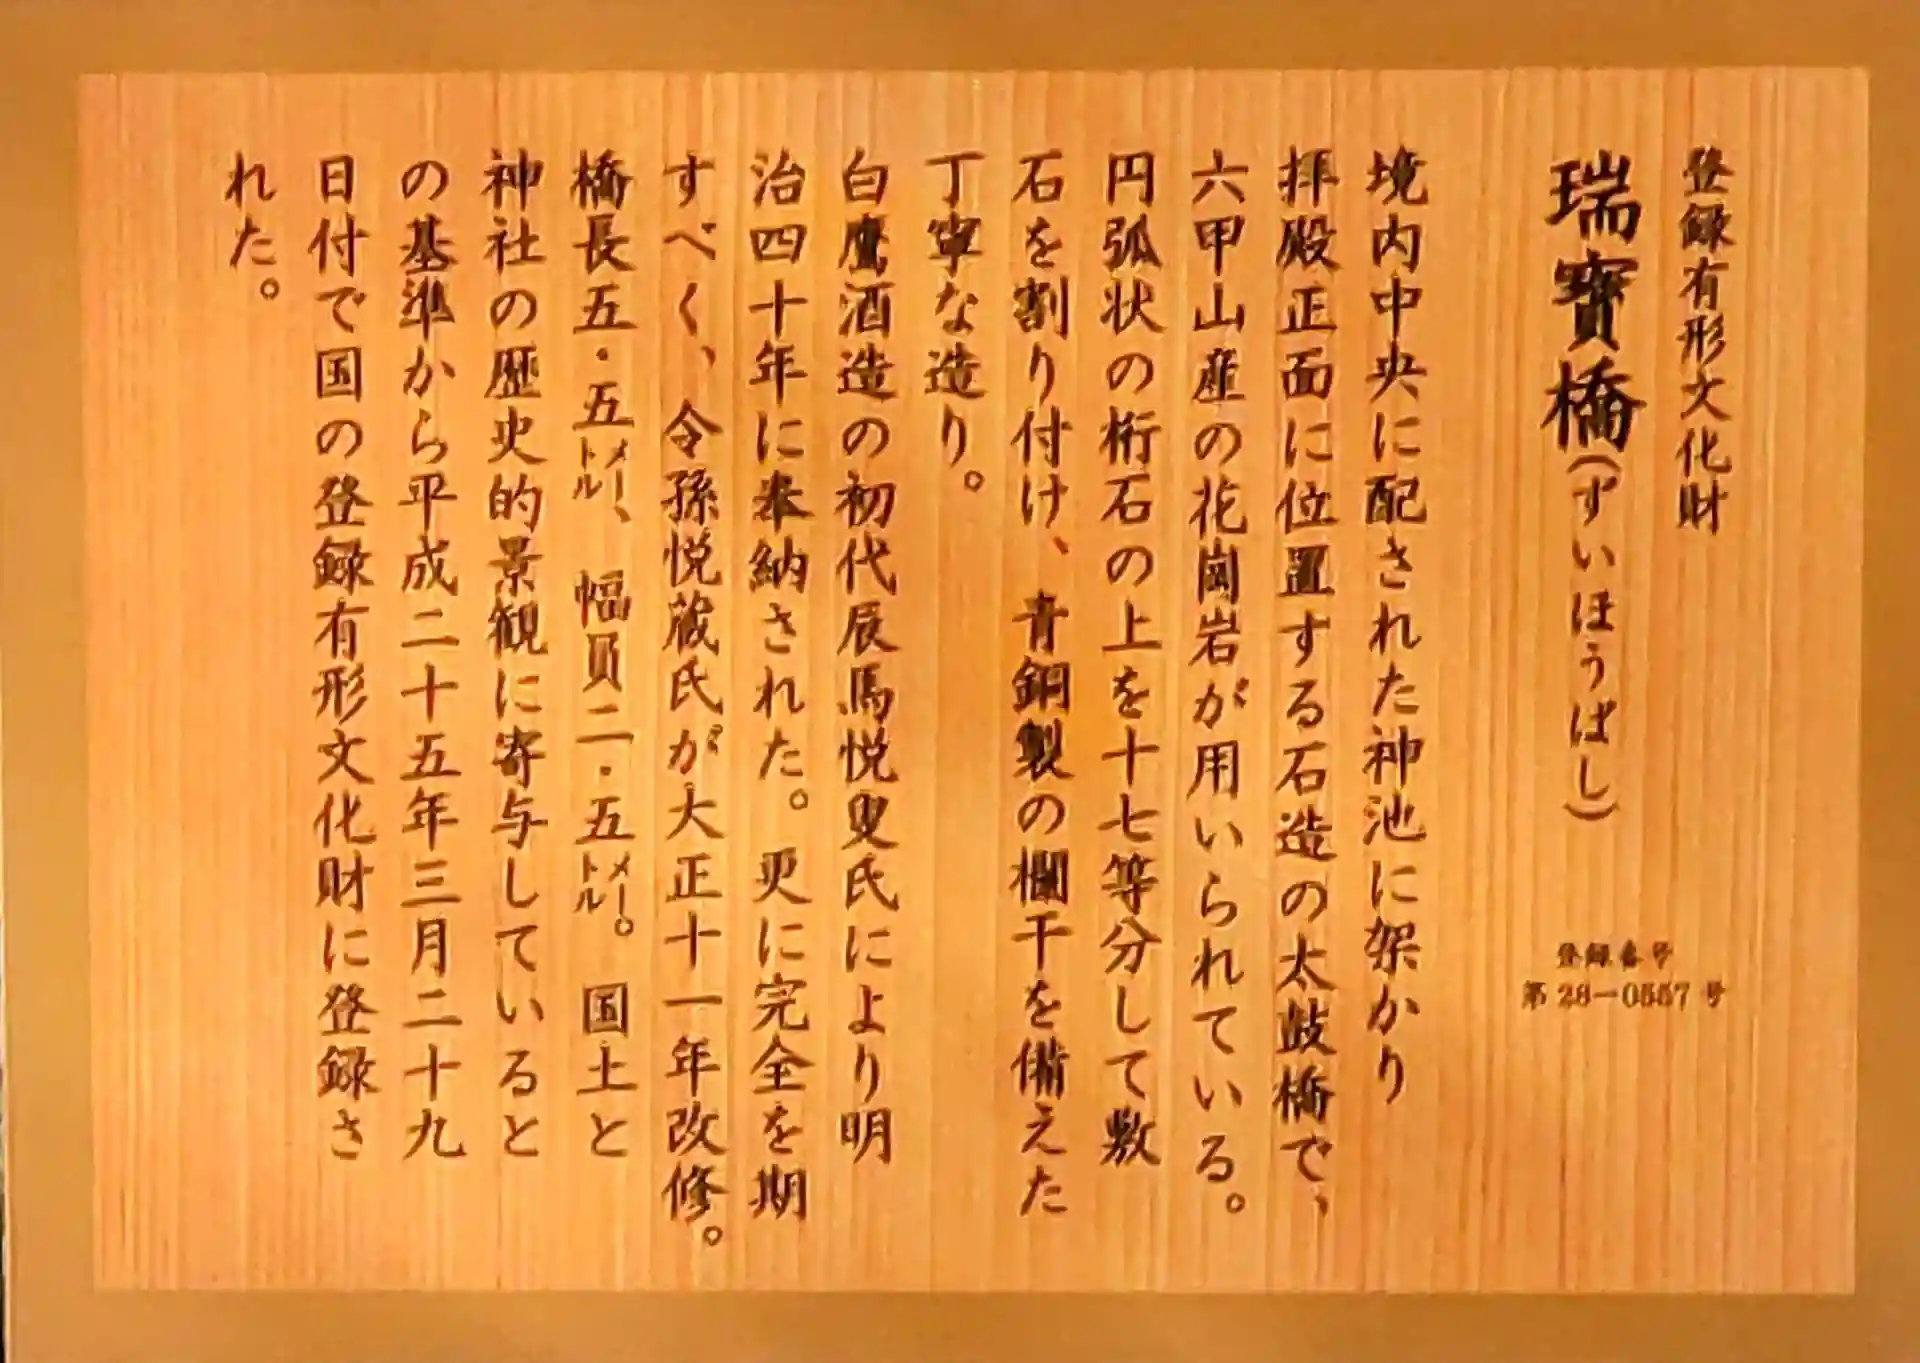 登録有形文化財
瑞寶橋(ずいほうばし)
登録番号
第28－0557号
境内中央に配された神池に架かり
拝殿正面に位置する石造の太鼓橋で、
六甲山産の花崗岩が用いられている。
円弧状の桁石の上を十七等分して敷
石を割り付け、青銅製の欄干を備えた
丁寧な造り。
白鷹酒造の初代辰馬悦叟氏により明
治四十年に奉納された。更に完全を期
すべく、令孫悦蔵氏が大正十一年改修。
橋長五・五メートル、幅員二・五メートル。国土と
神社の歴史的景観に寄与していると
の基準から平成二十五年三月二十九
日付で国の登録有形文化財に登録さ
れた。